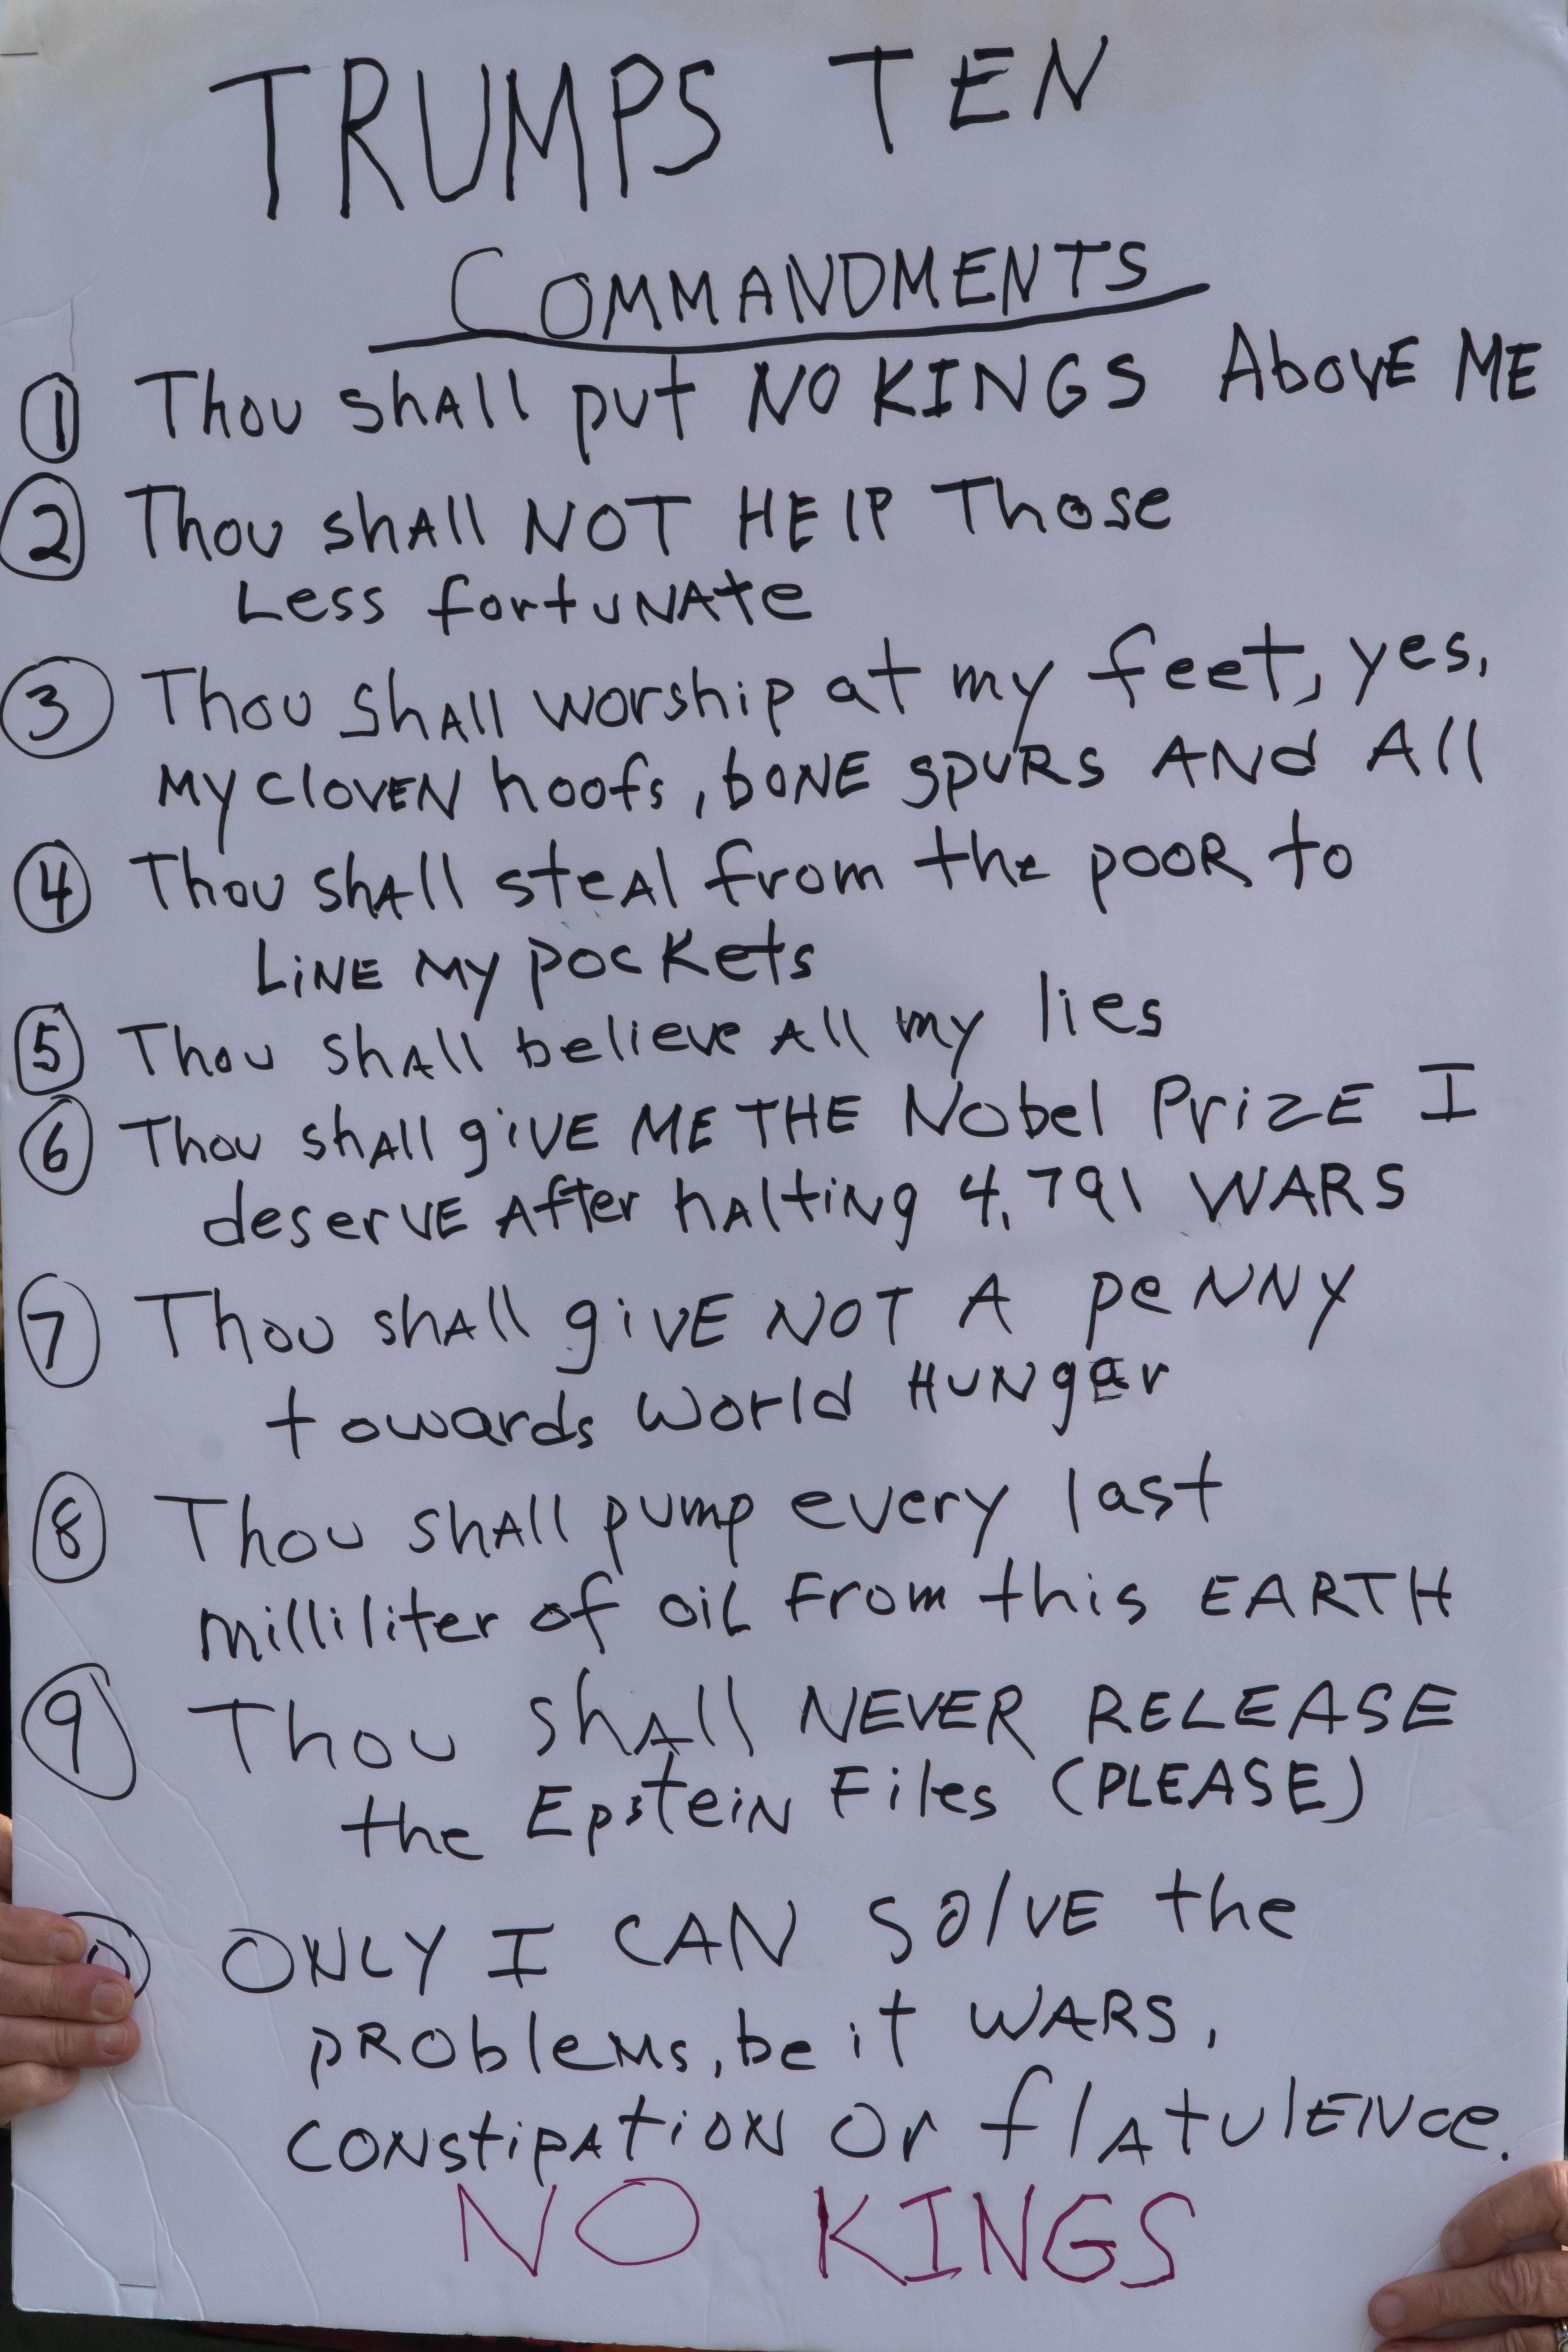 TRUMPS TEN
COMMANDMENTS
1 Thou shAll put NO KINGS AbovE ME
2 Thou shAll NOT HElP Those
Less fortuNAte
3 Thou shAll worship at my feet, yes,
MY cloVEN hoofs, bONE spuRs ANd All
4 Thou shAll steAl from the pooR to
LiNE MY pockets
5 Thou shAll believe All my lies
6 Thou shAll giVE ME THE Nobel PrizE I
deserVE After hAltiNg 4,791 WARS
7 Thou shAll giVE NOT A peNNY
towards World HUNger
8 Thou shAll pump every last
milliliter of oiL From this EARTH
9 Thou shAll NEVER RELEASE
the EpsteiN Files (PLEASE)
0 ONLY I CAN SolVE the
pRobleMs, be it WARS,
CONstipAtioN Or flAtulENce.
NO KINGS